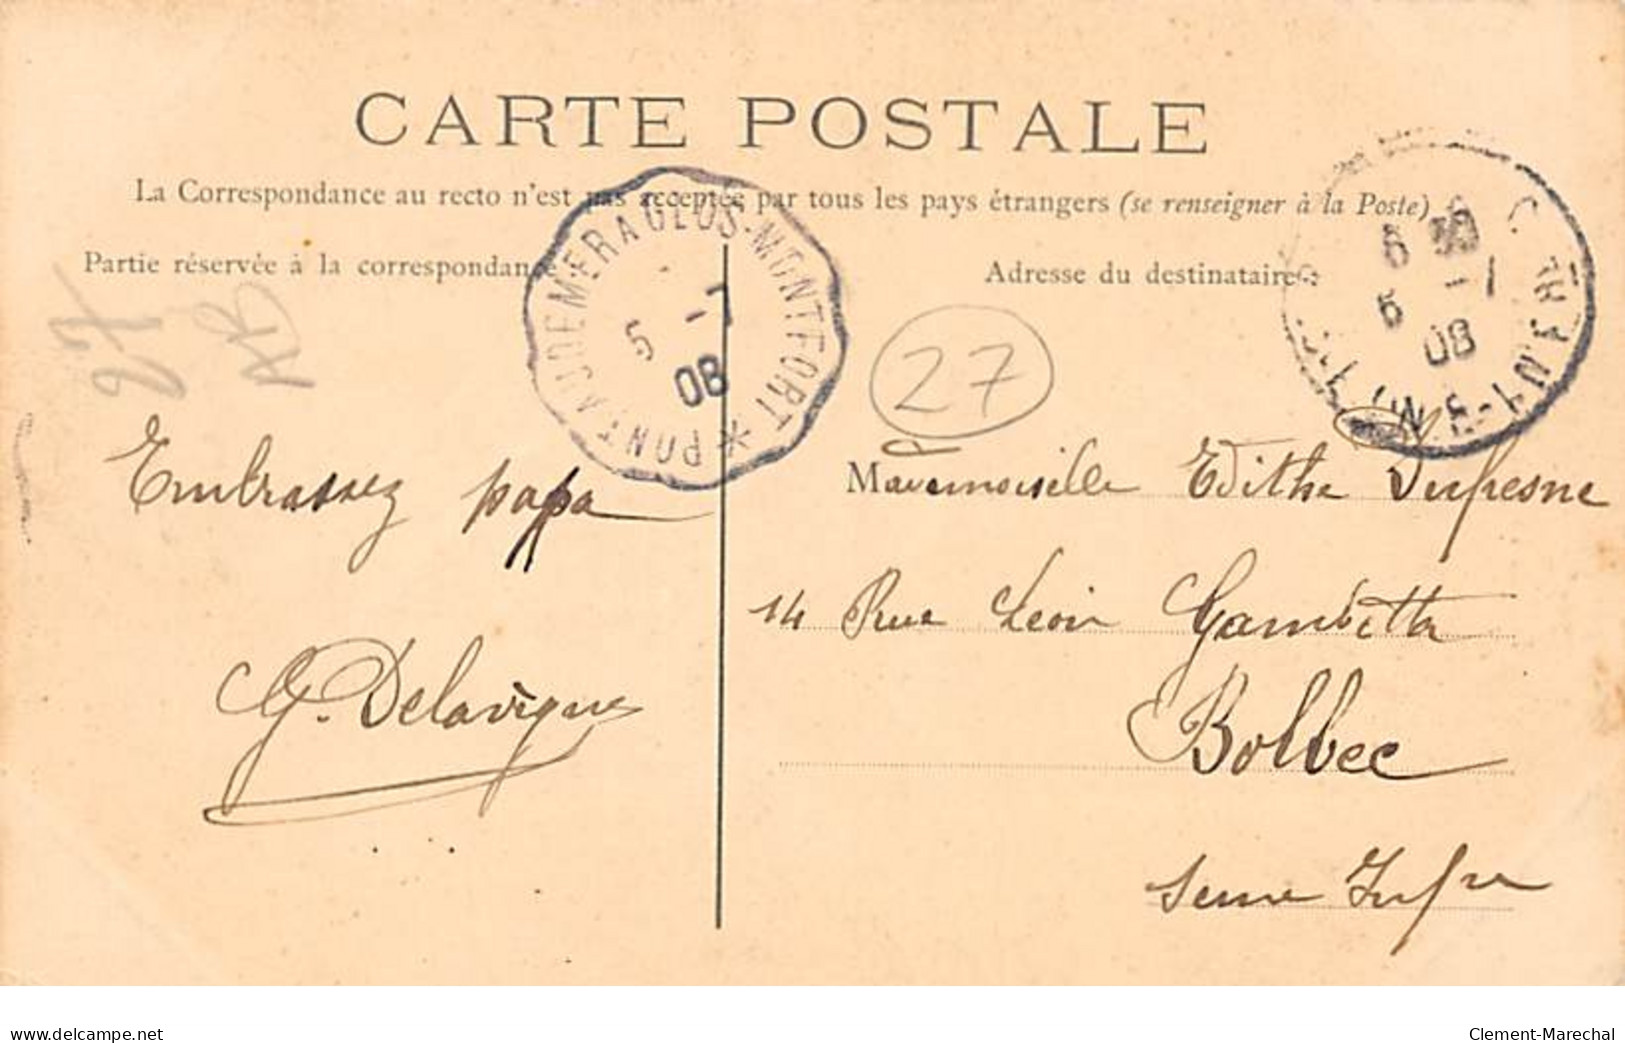 CARTE POSTALE
La Correspondance au recto n'est pas acceptée par tous les pays étrangers (se renseigner à la Poste)
Partie réservée à la correspondance
Adresse du destinataire
PONT AUDEMER A GLOS-MONTFORT *
5 -1
08
6
5 -1
08
27
AB
27
Embrassez papa
G. Delavigne
Mademoiselle Edithe Dufresne
14 Rue Léon Gambetta
Bolbec
Seine Infre
www.delcampe.net
Clement-Marechal